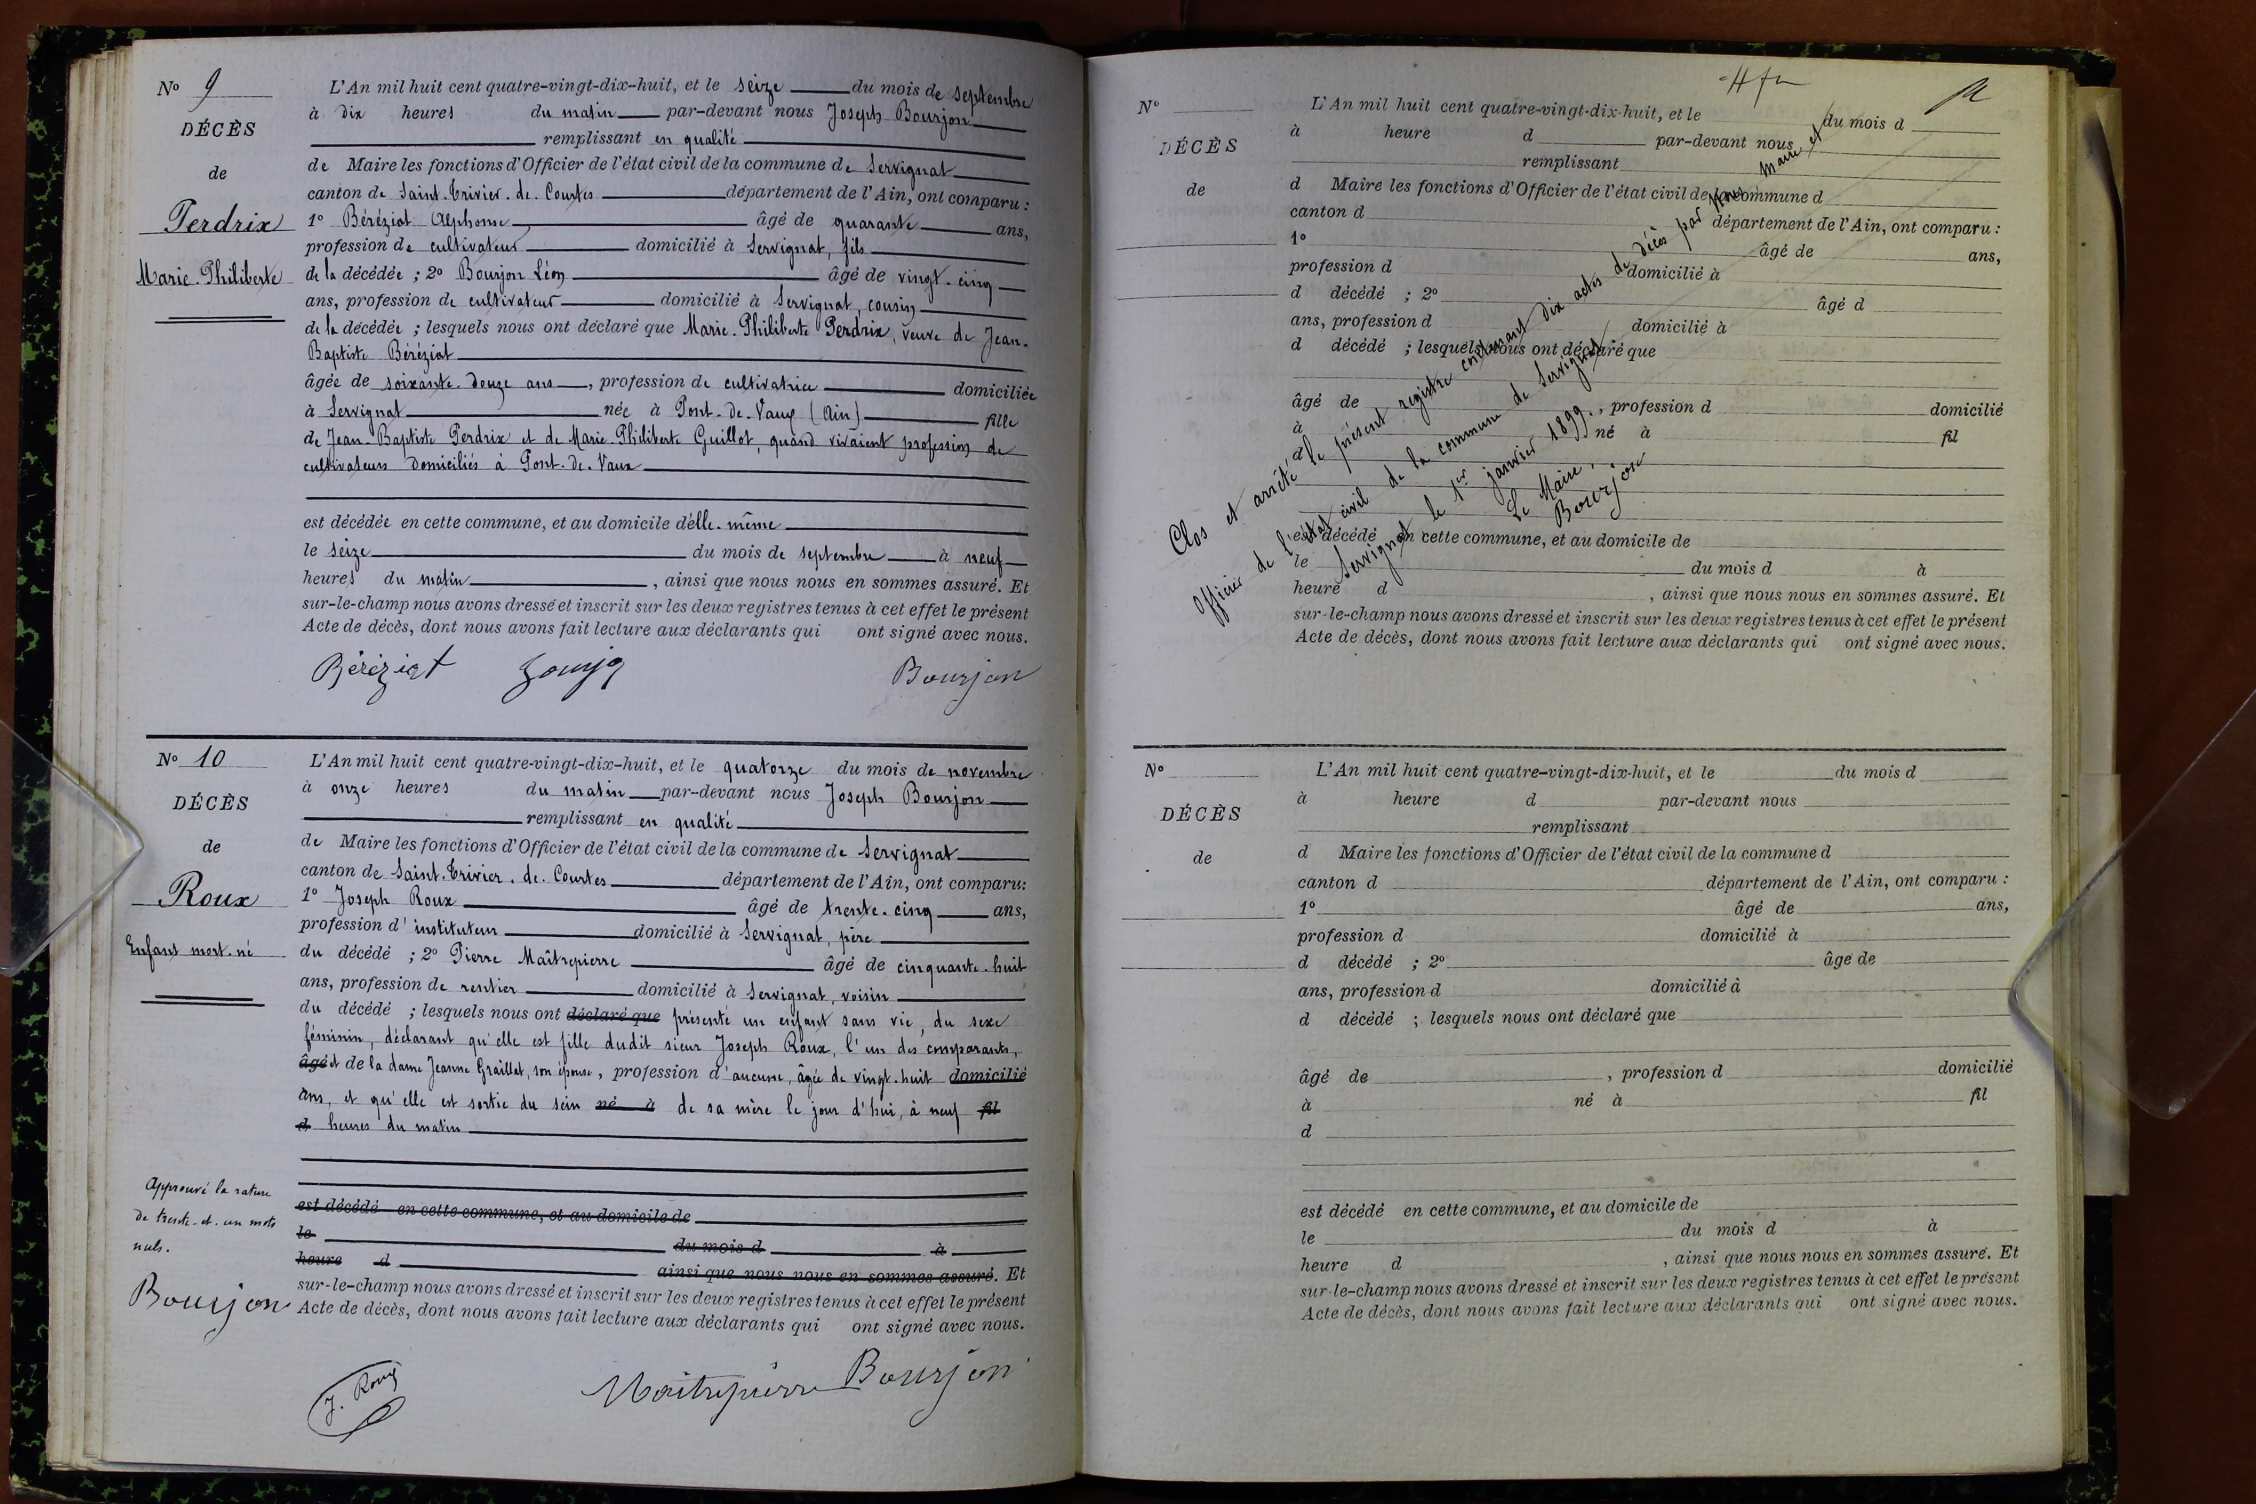 N° 9
DÉCÈS
de
Perdrix
Marie-Philiberte
L'An mil huit cent quatre-vingt-dix-huit, et le seize du mois de septembre
à dix heures du matin par-devant nous Joseph Bourjon
remplissant en qualité
de Maire les fonctions d'Officier de l'état civil de la commune de Servignat
canton de Saint-Trivier-de-Courtes département de l'Ain, ont comparu :
1° Béréziat Alphonse âgé de quarante ans,
profession de cultivateur domicilié à Servignat, fils
de la décédée ; 2° Bourjon Léon âgé de vingt-cinq
ans, profession de cultivateur domicilié à Servignat, cousin
de la décédée ; lesquels nous ont déclaré que Marie-Philiberte Perdrix, veuve de Jean-
Baptiste Béréziat
âgée de soixante-douze ans, profession de cultivatrice domiciliée
à Servignat née à Pont-de-Vaux (Ain) fille
de Jean-Baptiste Perdrix et de Marie-Philiberte Guillot, quand vivaient profession de
cultivateurs domiciliés à Pont-de-Vaux
est décédée en cette commune, et au domicile d'elle-même
le seize du mois de septembre à neuf
heures du matin, ainsi que nous nous en sommes assuré. Et
sur-le-champ nous avons dressé et inscrit sur les deux registres tenus à cet effet le présent
Acte de décès, dont nous avons fait lecture aux déclarants qui ont signé avec nous.
Béréziat Bourjon
N° 10
DÉCÈS
de
Roux
Enfant mort-né
L'An mil huit cent quatre-vingt-dix-huit, et le quatorze du mois de novembre
à onze heures du matin par-devant nous Joseph Bourjon
remplissant en qualité
de Maire les fonctions d'Officier de l'état civil de la commune de Servignat
canton de Saint-Trivier-de-Courtes département de l'Ain, ont comparu:
1° Joseph Roux âgé de trente-cinq ans,
profession d'instituteur domicilié à Servignat, père
du décédé ; 2° Pierre Maîtrepierre âgé de cinquante-huit
ans, profession de rentier domicilié à Servignat, voisin
du décédé ; lesquels nous ont déclaré que présenté un enfant sans vie, du sexe
féminin, déclarant qu'elle est fille dudit sieur Joseph Roux, l'un des comparants,
âgé et de la dame Jeanne Graillet, son épouse, profession d'aucune, âgée de vingt-huit domicilié
à ans, et qu'elle est sortie du sein né à de sa mère le jour d'hui, à neuf fil
d heures du matin
est décédé en cette commune, et au domicile de
le du mois d à
heure d ainsi que nous nous en sommes assuré. Et
sur-le-champ nous avons dressé et inscrit sur les deux registres tenus à cet effet le présent
Acte de décès, dont nous avons fait lecture aux déclarants qui ont signé avec nous.
Approuvé la rature
de trente-et-un mots
nuls.
Bourjon
J. Roux Maitrepierre Bourjon
N°
DÉCÈS
de
L'An mil huit cent quatre-vingt-dix-huit, et le du mois d
à heure d par-devant nous
remplissant
d Maire les fonctions d'Officier de l'état civil de la commune d
canton d département de l'Ain, ont comparu :
1° âgé de ans,
profession d domicilié à
d décédé ; 2° âgé d
ans, profession d domicilié à
d décédé ; lesquels nous ont déclaré que
âgé de , profession d domicilié
à né à fil
d
est décédé en cette commune, et au domicile de
le du mois d à
heure d , ainsi que nous nous en sommes assuré. Et
sur-le-champ nous avons dressé et inscrit sur les deux registres tenus à cet effet le présent
Acte de décès, dont nous avons fait lecture aux déclarants qui ont signé avec nous.
Clos et arrêté le présent registre contenant dix actes de décès par Nous Maire et
officier de l'état civil de la commune de Servignat
Servignat le 1er janvier 1899.
Le Maire,
Bourjon
N°
DÉCÈS
de
L'An mil huit cent quatre-vingt-dix-huit, et le du mois d
à heure d par-devant nous
remplissant
d Maire les fonctions d'Officier de l'état civil de la commune d
canton d département de l'Ain, ont comparu :
1° âgé de ans,
profession d domicilié à
d décédé ; 2° âge de
ans, profession d domicilié à
d décédé ; lesquels nous ont déclaré que
âgé de , profession d domicilié
à né à fil
d
est décédé en cette commune, et au domicile de
le du mois d à
heure d , ainsi que nous nous en sommes assuré. Et
sur-le-champ nous avons dressé et inscrit sur les deux registres tenus à cet effet le présent
Acte de décès, dont nous avons fait lecture aux déclarants qui ont signé avec nous.